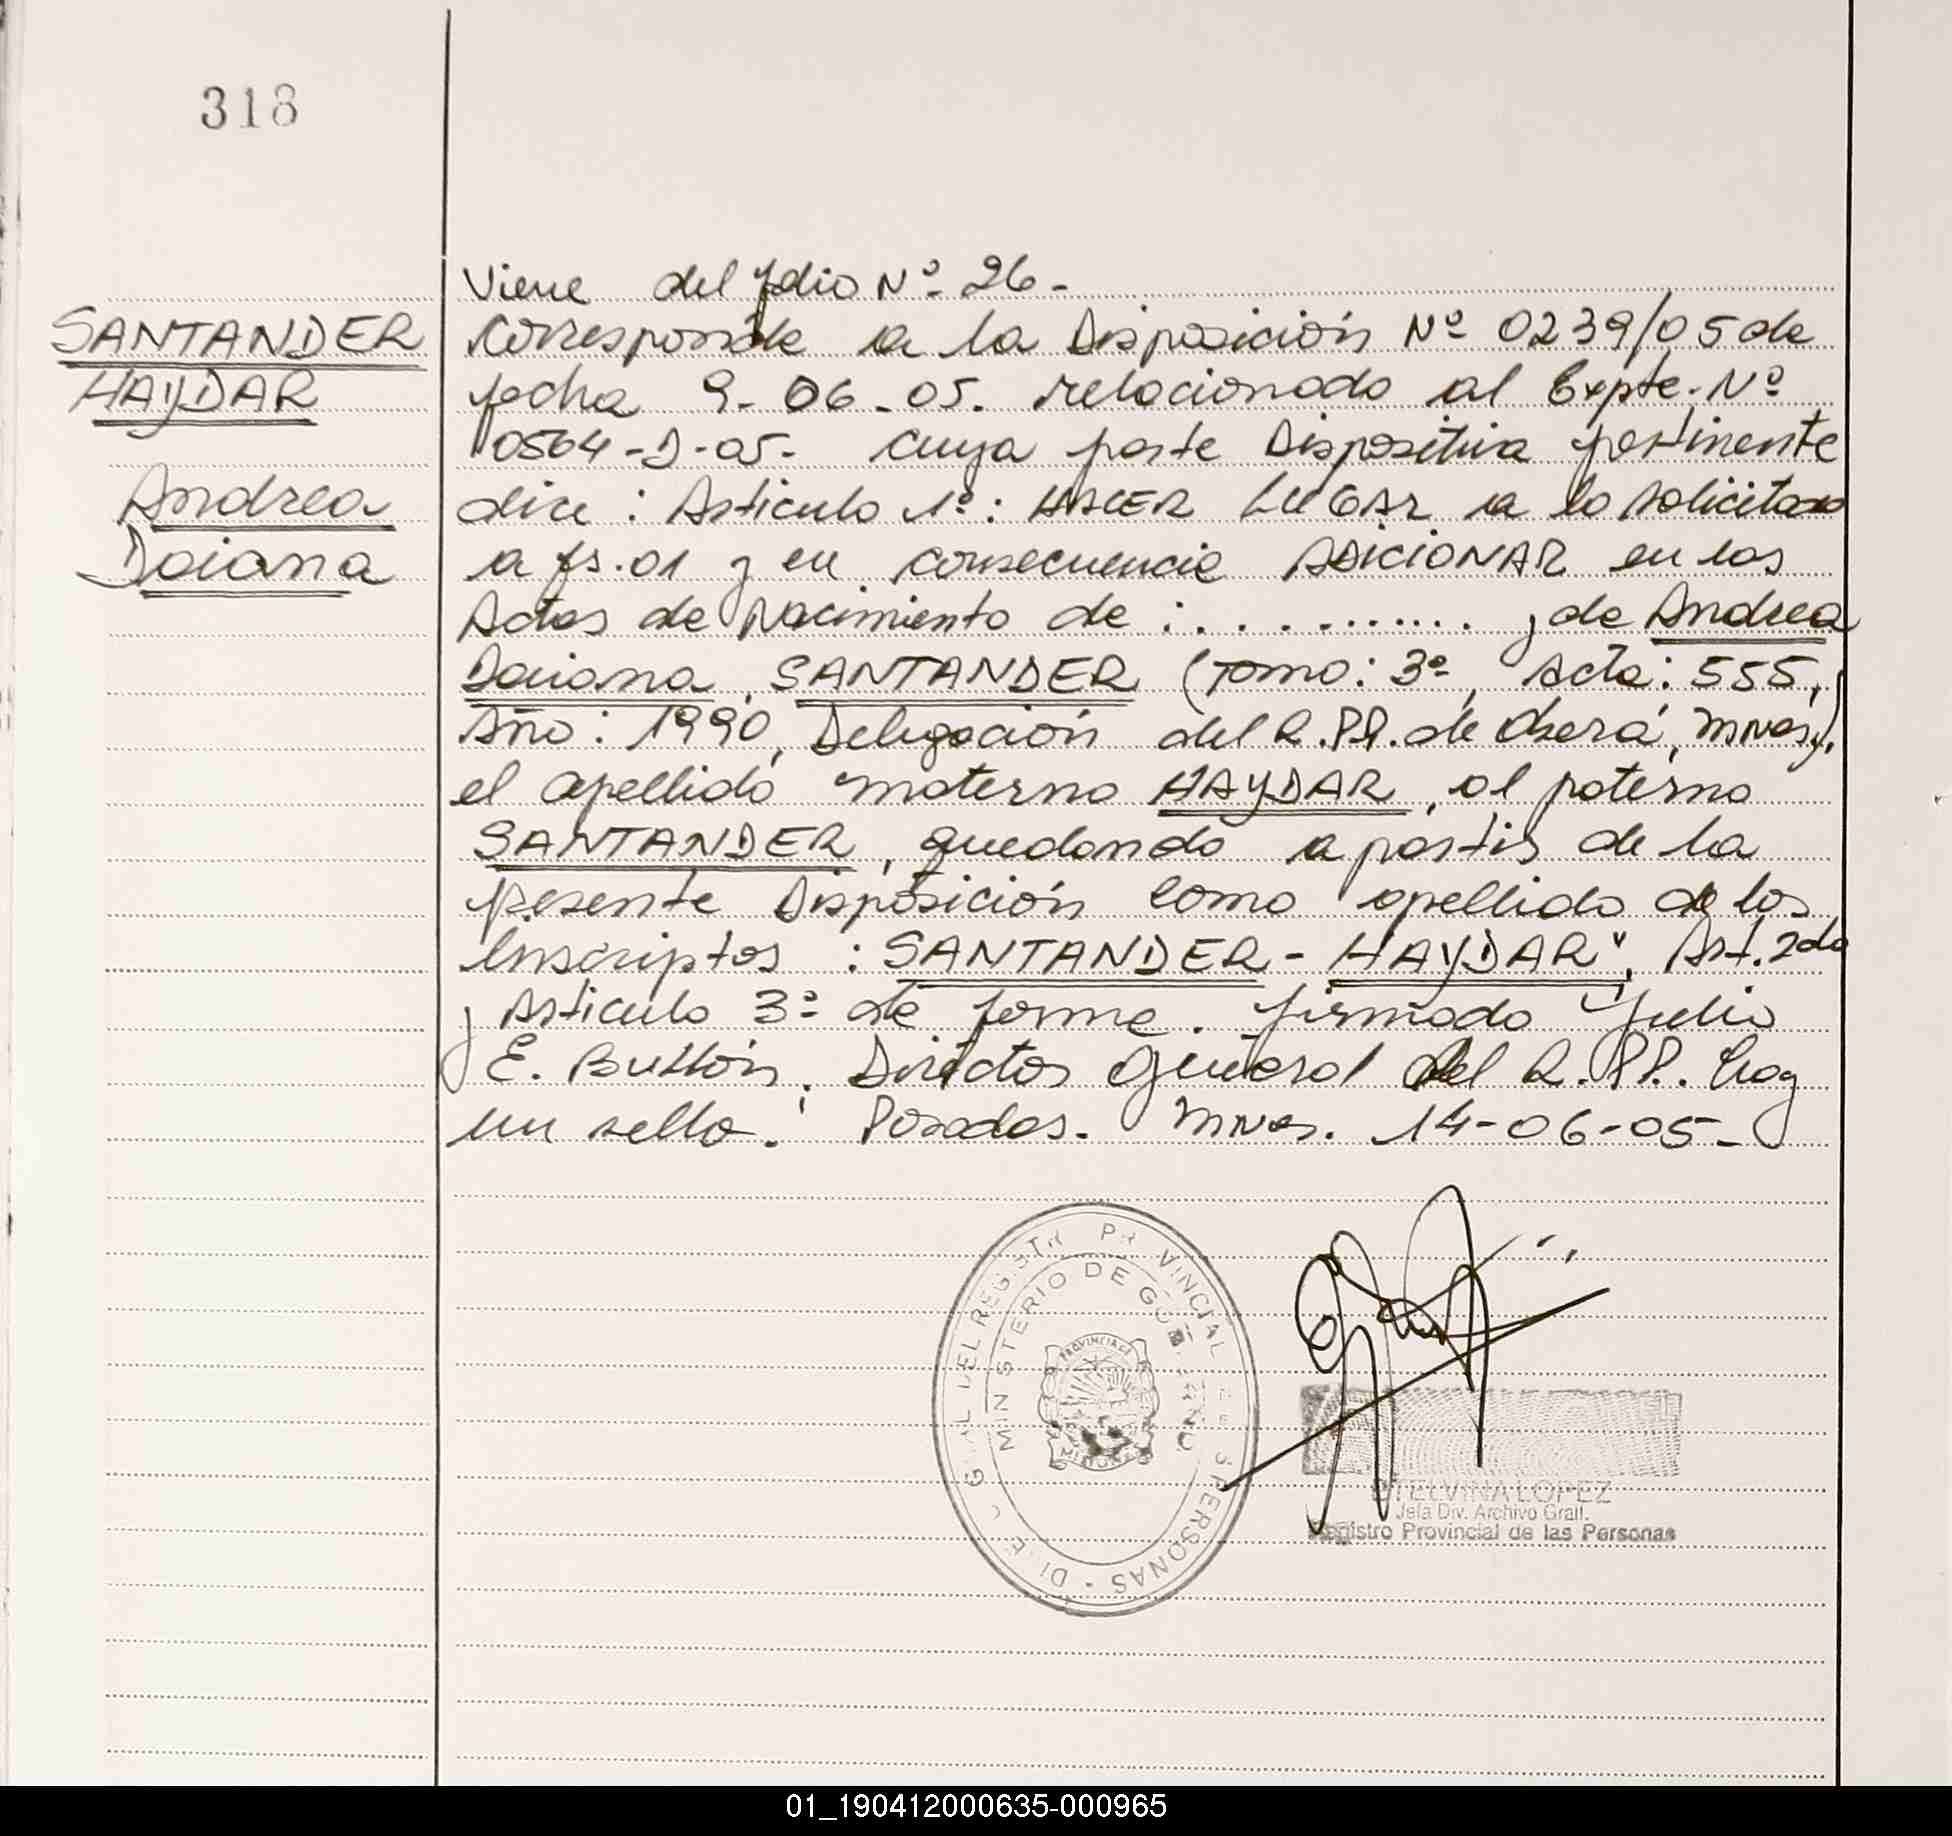 318
SANTANDER
HAYDAR
Andrea
Daiana
Viene del folio Nº 26-
Corresponde a la Disposición Nº 0239/05 de
fecha 9-06-05. relacionado al Expte. Nº
0564-D-05- cuya parte Dispositiva pertinente
dice: Articulo 1º: HACER LUGAR a lo solicitado
a fs. 01 y en consecuencia ADICIONAR en las
Actas de Nacimiento de : ............ , de Andrea
Daiana, SANTANDER (Tomo: 3º, Acta: 555,
Año: 1990, Delegación del R.P.P. de Oberá, Mnes),
el apellido materno HAYDAR, al paterno
SANTANDER, quedando a partir de la
presente Disposición como apellido de los
inscriptos : SANTANDER - HAYDAR", Art. 2do
y Articulo 3º de forma. firmado Julio
E. Director General del R.P.P. Hay
un sello. Posadas. Mnes. 14-06-05-
REGISTR PR VINCIAL PERSONAS
MINISTERIO DE GOBI RNO
PROVINCIA DE
MISIONES
ETELVINA LOPEZ
Jefa Div. Archivo Gral.
Registro Provincial de las Personas
01_190412000635-000965